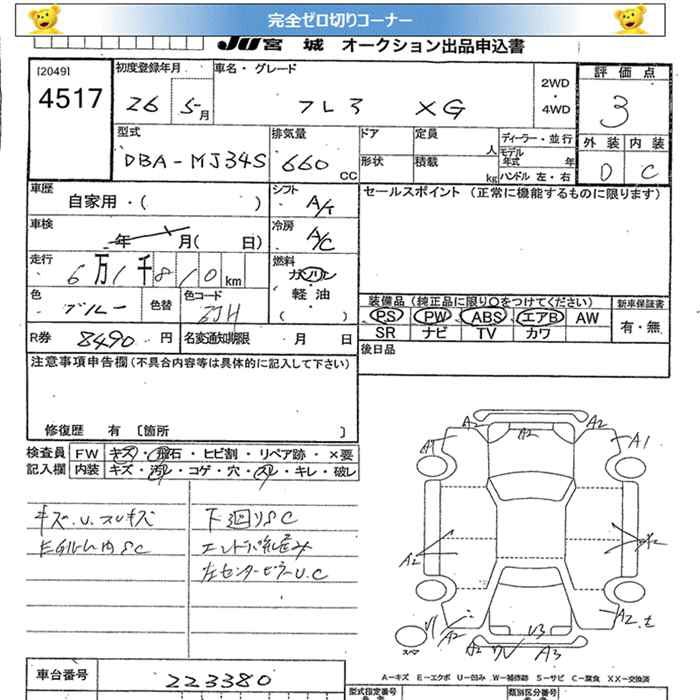 完全ゼロ切りコーナー
JU宮城 オークション出品申込書
[2049]
4517
初度登録年月
26 5月
車名・グレード
フレア XG
2WD
・
4WD
評価点
3
外装 内装
D C
型式
DBA-MJ34S
排気量
660 CC
ドア
形状
定員 人
積載 kg
ディーラー・並行
モデル年式 年
ハンドル 左・右
車歴
自家用・( )
シフト
A/T
セールスポイント (正常に機能するものに限ります)
車検
年 月( 日)
冷房
A/C
走行
6万1千810km
燃料
ガソリン
軽油
( )
色
ブルー
色替
色コード
ZJH
装備品(純正品に限り○をつけてください)
PS PW ABS エアB AW
SR ナビ TV カワ
新車保証書
有・無
R券 8490円
名変通知期限 月 日
後日品
注意事項申告欄(不具合内容等は具体的に記入して下さい)
修復歴 有 〔箇所 〕
検査員記入欄
FW キズ・飛石・ヒビ割・リペア跡・×要
内装 キズ・汚レ・コゲ・穴・スレ・キレ・破レ
キズ.U.スリキズ
下廻りSC
左センターピラーU.C
A2 A2 A2
A1 A1
A2 A2
A2 A2
U3
A2 A3
スペア
A-キズ E-エクボ U-凹み W-補修跡 S-サビ C-腐食 XX-交換済
車台番号
223380
型式指定番号
類別区分番号